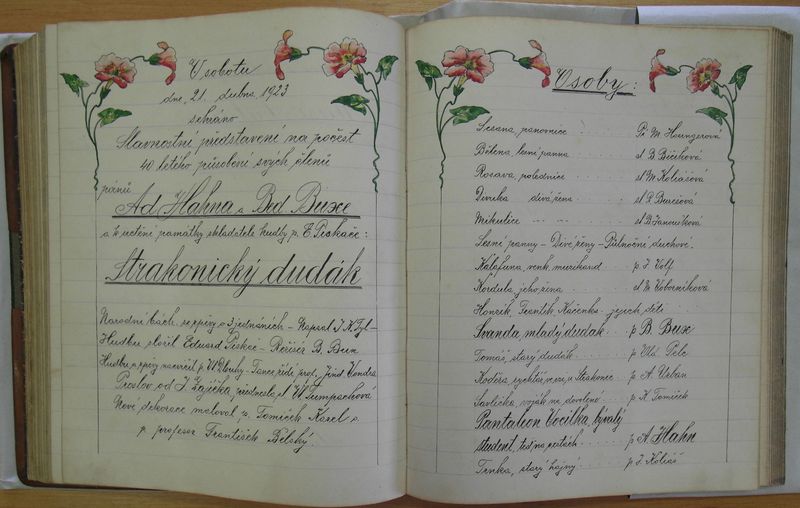 V sobotu
dne 21. dubna 1923
sehráno
Slavnostní představení na počest
40 letého působení svých členů
pánů
Ad. Hahna a Bed. Buxe
a k uctění památky skladatele hudby p. E. Piskače:
Strakonický dudák
Národní bách. se zpěvy o 3 jednáních – Napsal J. K. Tyl –
Hudbu složil Eduard Piskač – Režisér B. Bux
Hudbu a zpěvy nacvičil p. W. Dlouhý – Tance řídí prof. Jind. Vondra
Proslov od J. Zajíčka, přednesla sl.
Nové dekorace maloval p. Tomíček Karel a
p. profesor František Bělský.
Osoby:
Lesana, panovnice Pí M. Houngerová
Bělena, lesní panna sl. B. Bicíková
Rosava, polednice sl. M. Koliášová
Divika divá žena sl. P. Burešová
Mihulice --- --- sl. B. Janoušková
Lesní panny – Divé ženy – Půlnoční duchové.
Kalafuna, venk. muzikand. p. J. Volf
Kordula, jeho žena sl. M. Voborníková
Honzík, František, Kačenka – jejich děti
Švanda, mladý dudák p. B. Bux
Tomáš, starý dudák p. Vlá. Pele
Koděra, rychtář, ve vsi, u Strakonic p. A. Urban
Šavlička, voják na dovolené p. K. Tomíček
Pantaleon Vocilka, bývalý
student, teď na cestách p. A. Hahn
Trnka, starý hajný p. J. Koliáš